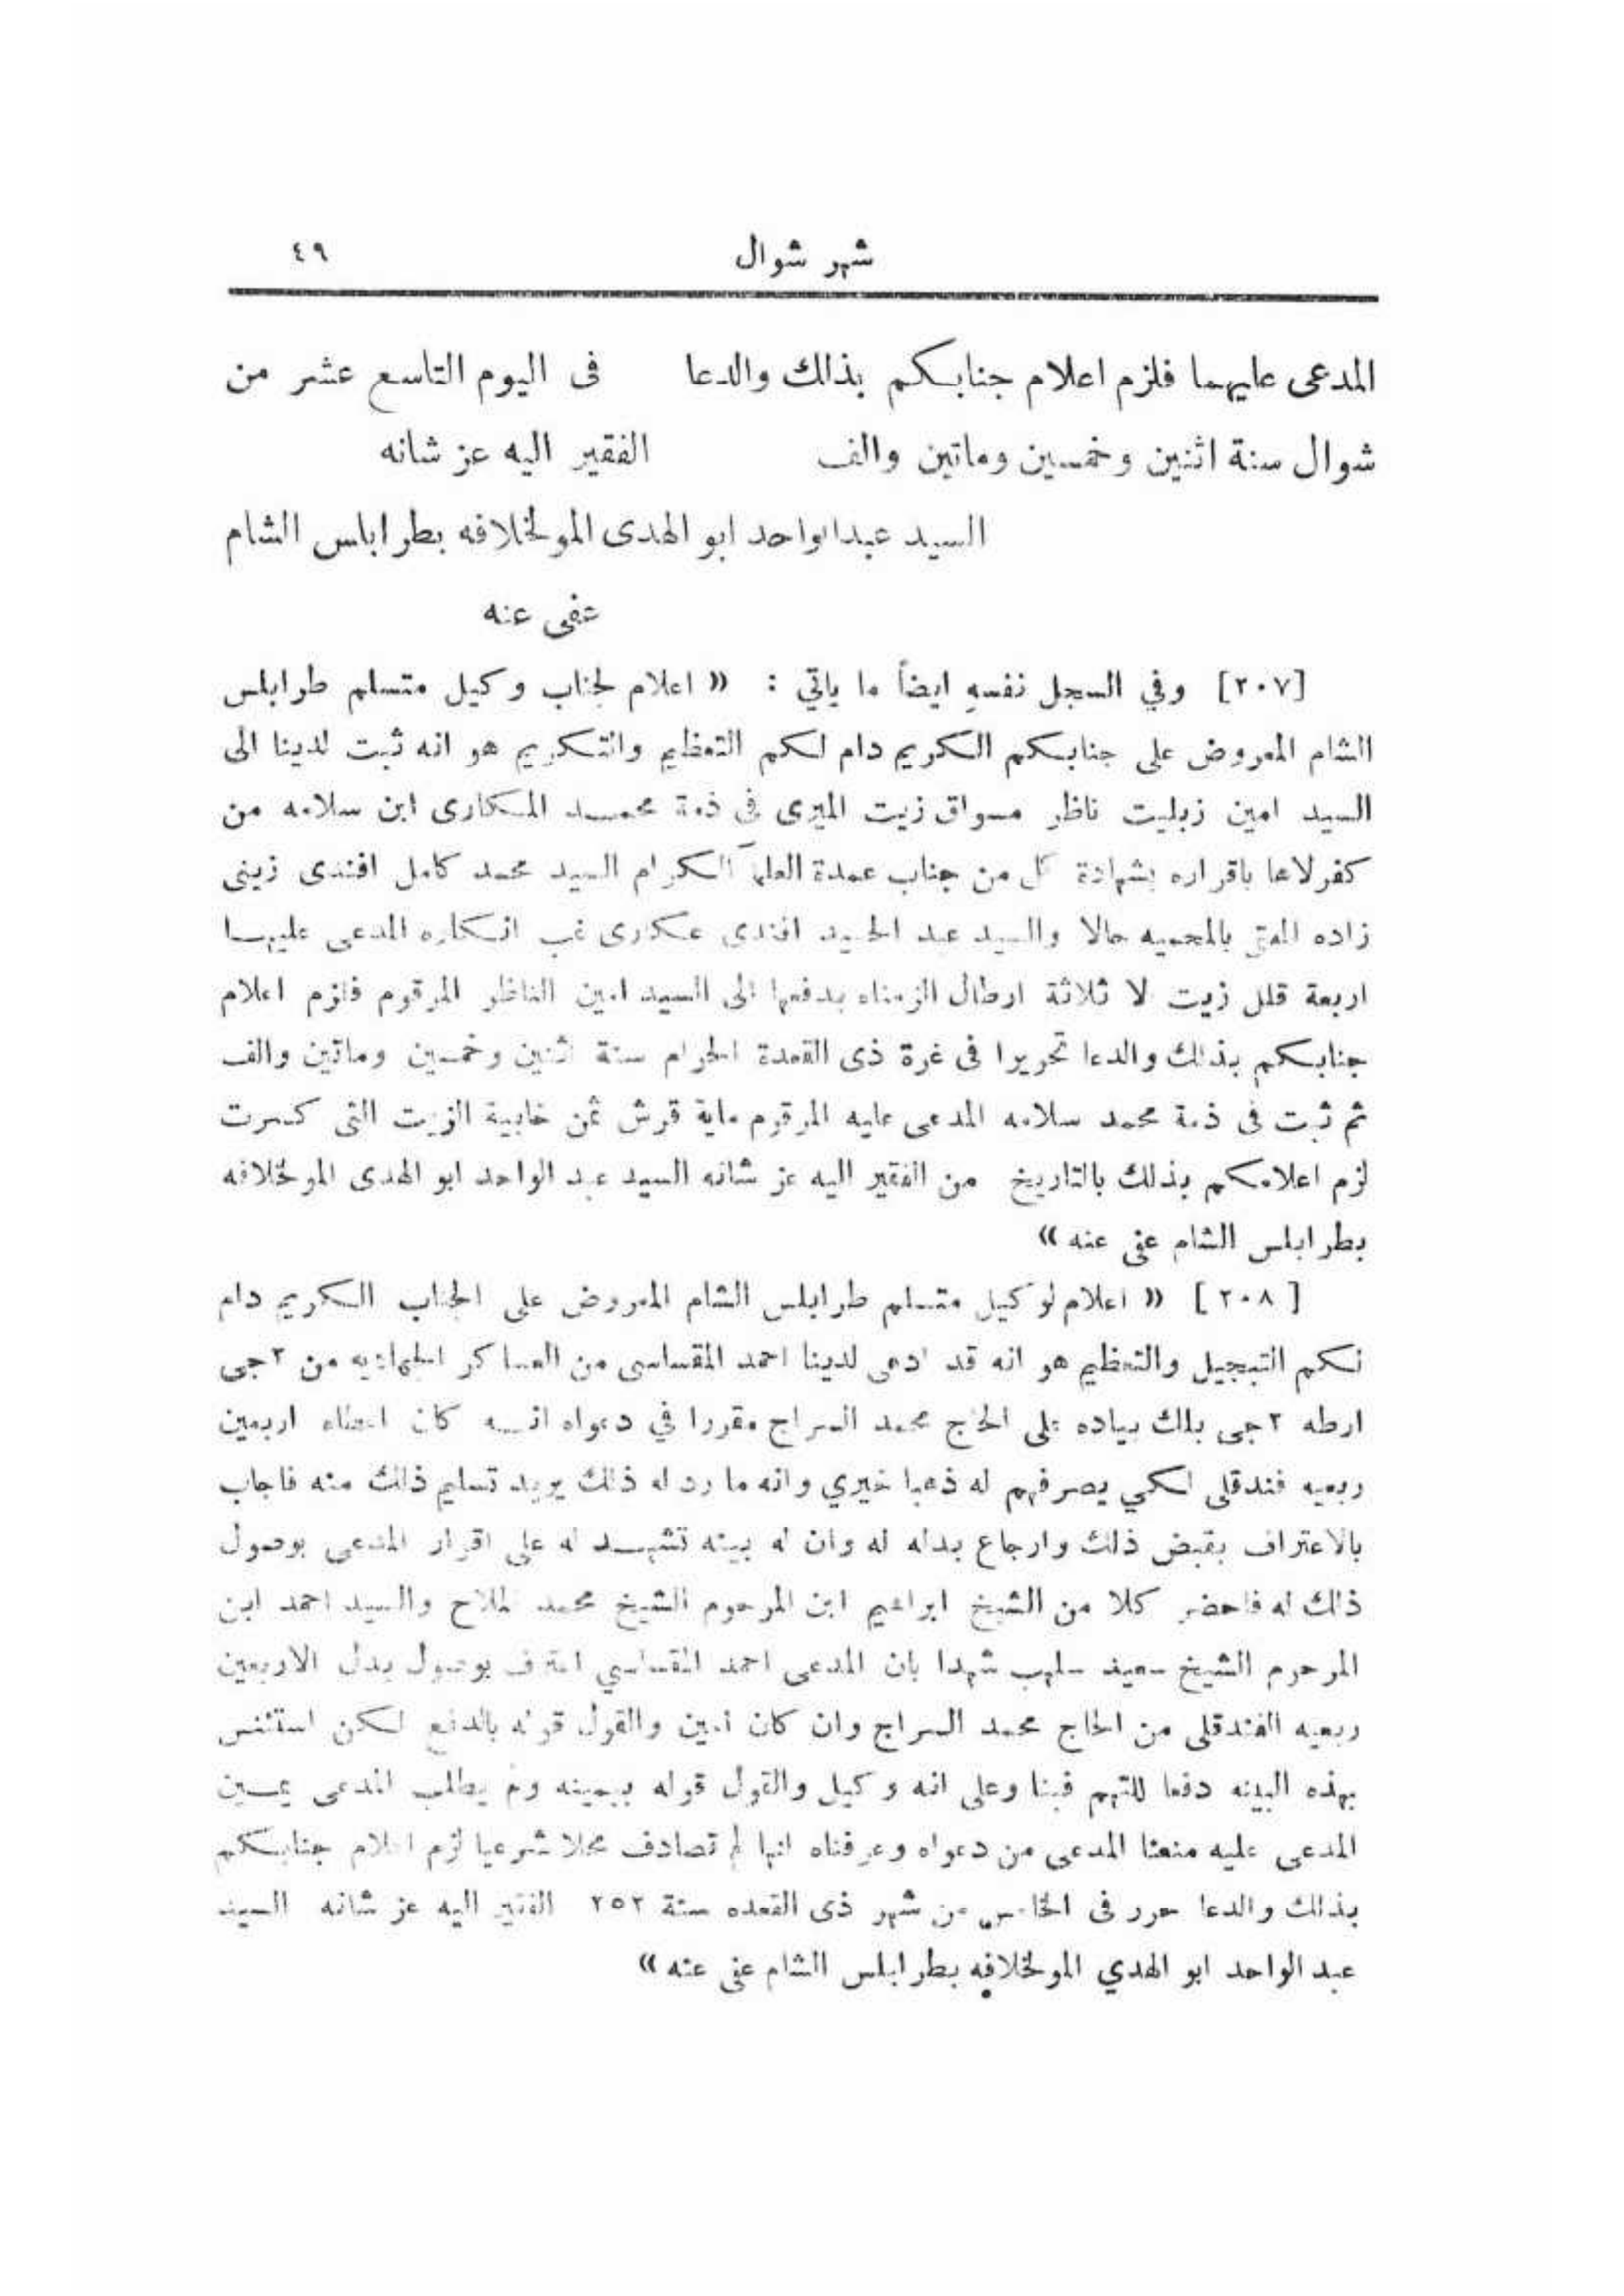 شهر شوال ٤٩
المدعى عليهما فلزم اعلام جنابكم بذلك والدعا فى اليوم التاسع عشر من
شوال سنة اثنين وخمسين وماتين والف الفقير اليه عز شانه
السيد عبدالواحد ابو الهدى المولخلافه بطرابلس الشام
عفى عنه
[٢٠٧] وفي السجل نفسهِ ايضاً ما ياتي : « اعلام لجناب وكيل متسلم طرابلس
الشام المعروض على جنابكم الكريم دام لكم التعظيم والتكريم هو انه ثبت لدينا الى
السيد امين زبليت ناظر مسواق زيت الميرى في ذمة محمد المكارى ابن سلامه من
كفرلاعا باقراره بشهادة كل من جناب عمدة العلمآ الكرام السيد محمد كامل افندى زينى
زاده المفتى بالمحميه حالا والسيد عبد الحميد افندى عكارى غب انكاره المدعى عليهما
اربعة قلل زيت الا ثلاثة ارطال الزمناه بدفعها الى السيد امين الناظر المرقوم فلزم اعلام
جنابكم بذلك والدعا تحريرا فى غرة ذى القعدة الحرام سنة اثنين وخمسين وماتين والف
ثم ثبت فى ذمة محمد سلامه المدعى عليه المرقوم ماية قرش ثمن خابية الزيت التى كسرت
لزم اعلامكم بذلك بالتاريخ من الفقير اليه عز شانه السيد عبد الواحد ابو الهدى المولخلافه
بطرابلس الشام عفى عنه »
[٢٠٨] « اعلام لوكيل متسلم طرابلس الشام المعروض على الجناب الكريم دام
لكم التبجيل والتعظيم هو انه قد ادعى لدينا احمد المقساسى من العساكر الجهاديه من ٢جى
ارطه ٢جى بلك بياده على الحاج محمد السراج مقررا في دعواه انه كان اعطاه اربعين
ربعيه فندقلى لكي يصرفهم له ذهبا خيري وانه ما رد له ذلك يريد تسليم ذلك منه فاجاب
بالاعتراف بقبض ذلك وارجاع بدله له وان له بينه تشهد له على اقرار المدعى بوصول
ذلك له فاحضر كلا من الشيخ ابراهيم ابن المرحوم الشيخ محمد الملاح والسيد احمد ابن
المرحوم الشيخ سعيد سلهب شهدا بان المدعى احمد المقساسي اعترف بوصول بدل الاربعين
ربعيه الفندقلى من الحاج محمد السراج وان كان امين والقول قوله بالدفع لكن استئنس
بهذه البينه دفعا للتهم فبنا وعلى انه وكيل والقول قوله بيمينه ولم يطلب المدعى يمين
المدعى عليه منعنا المدعى من دعواه وعرفناه انها لم تصادف محلا شرعيا لزم اعلام جنابكم
بذلك والدعا حرر فى الخامس من شهر ذى القعده سنة ٢٥٢ الفقير اليه عز شانه السيد
عبد الواحد ابو الهدي المولخلافه بطرابلس الشام عفى عنه »